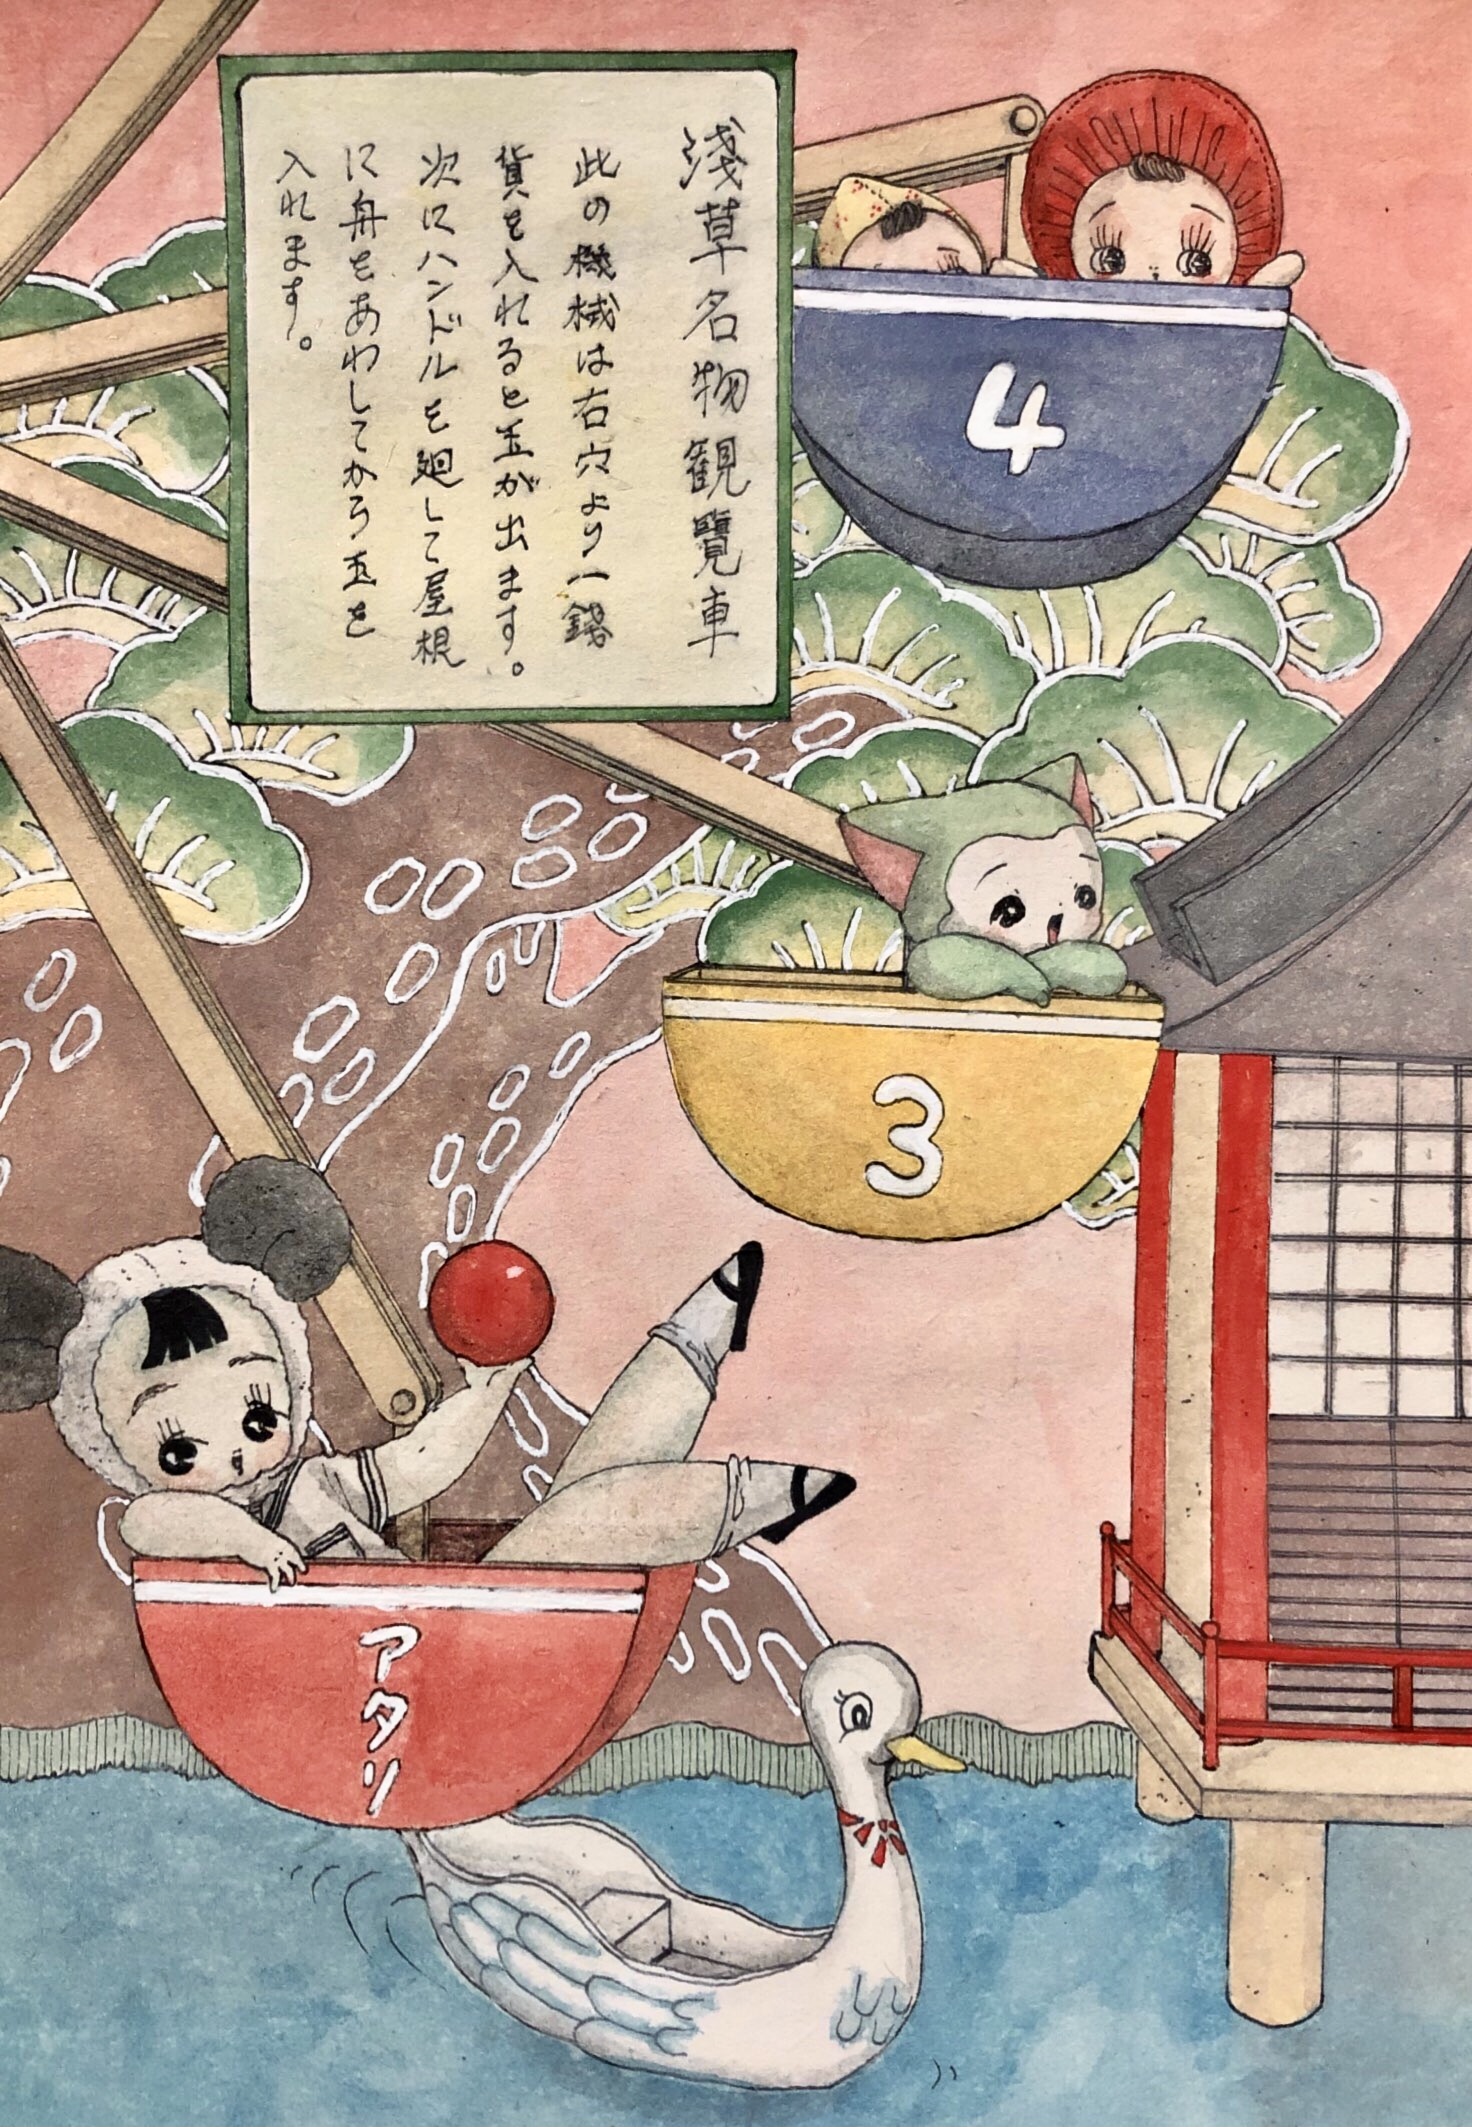 淺草名物観覽車
此の機械は右穴より一錢
貨を入れると玉が出ます。
次にハンドルを廻して屋根
に舟をあわしてから玉を
入れます。
4
3
アタリ